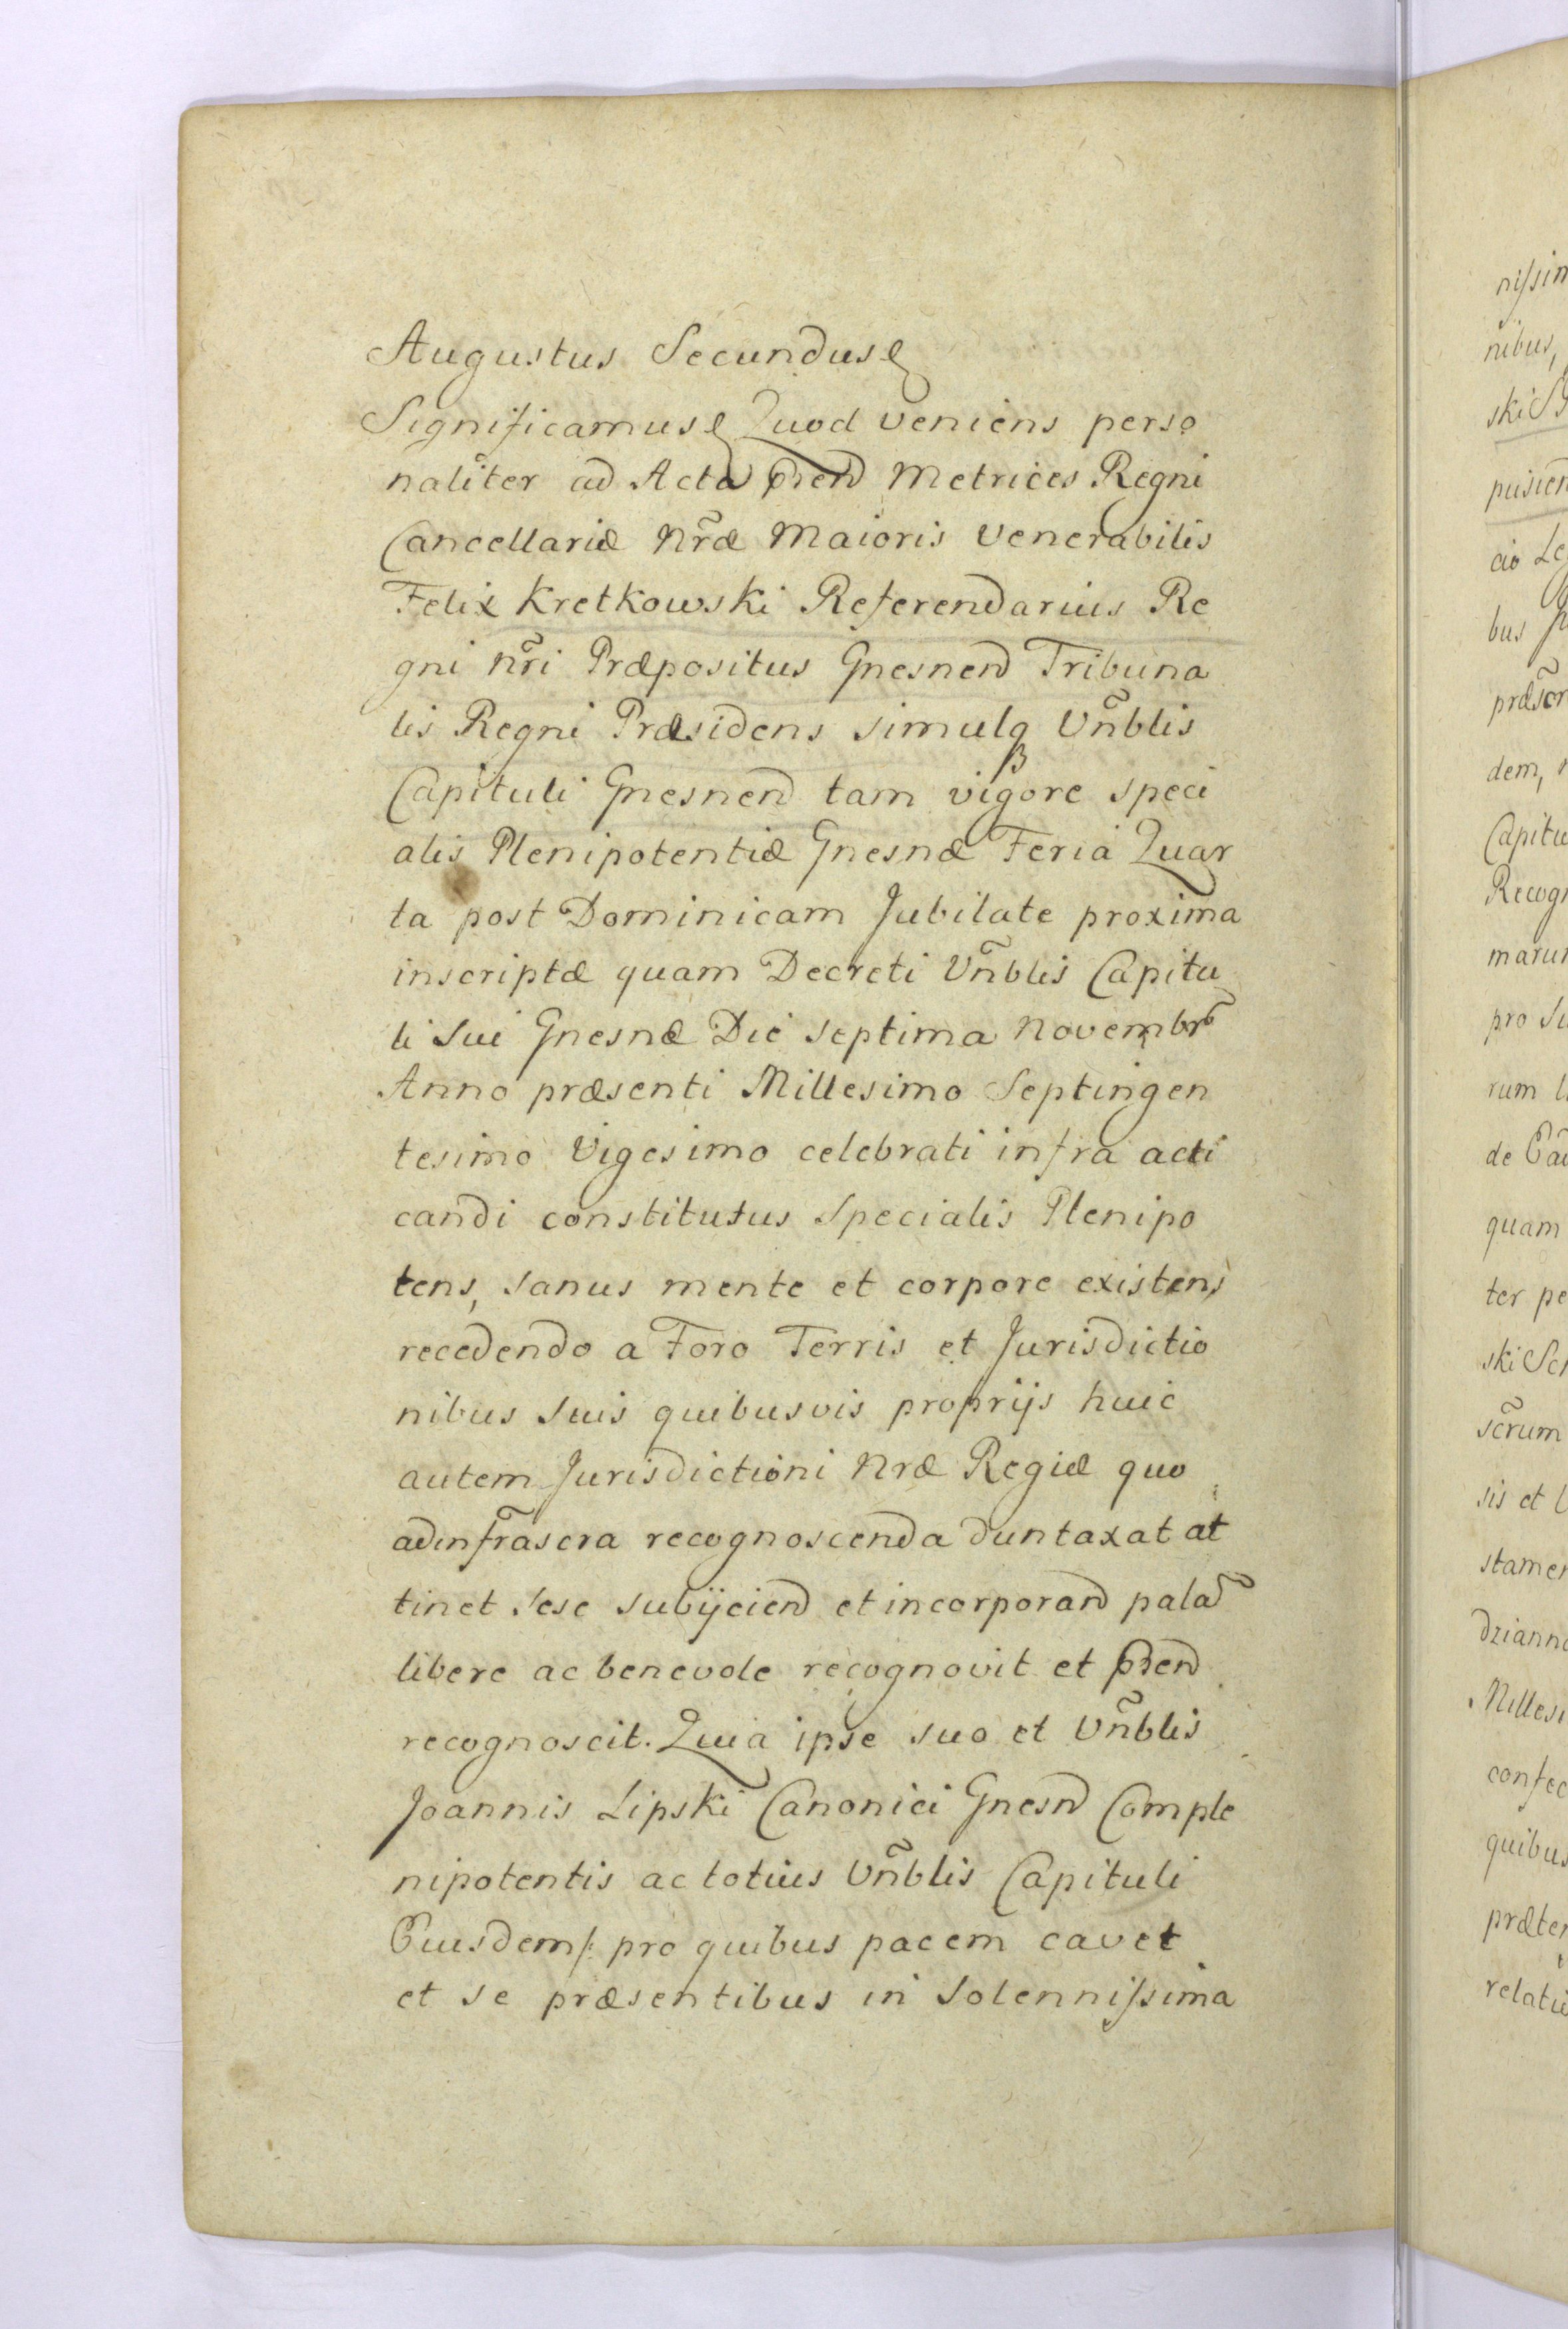 Augustus Secundus
Significamus Quod veniens perso
naliter ad Acta p̃rend Metrices Regni
Cancellariæ Nr̃æ Maioris Venerabilis
Felix Kretkowski Referendarius Re
gni Nr̃i Præpositus Gnesnen̄ Tribuna
lis Regni Præsidens simulq Vñblis
Capituli Gnesnen̄ tam vigore speci
alis Plenipotentiæ Gnesnæ Feria Quar
ta post Dominicam Jubilate proxima
inscriptæ quam Decreti Vñblis Capitu
li Sui Gnesnæ Die Septima Novembr̃
Anno præsenti Millesimo Septingen
tesimo Vigesimo celebrati infra acti
candi constitutus Specialis Plenipo
tens, sanus mente et corpore existens
recedendo a Foro Terris et Jurisdictio
nibus suis quibusvis proprijs huic
autem Jurisdictioni Nræ Regiæ quo
adinfr̃ascra recognoscenda duntaxat at
tinet sese subijciend et incorporand pala͂
libere ac benevole recognovit et p̃rend
recognoscit. Quia ipse suo et Vñblis
Joannis Lipski Canonici Gnesn̄ Comple
nipotentis ac totius Vñblis Capituli
Eiusdem /: pro quibus pacem cavet
et se præsentibus in Solennissima
nissim
nibus,
ski
dem,
Capitu
Recogn
marum
pro Su
rum
de
quam
ter pe
ski
scr̃um
sis et
stamen
Millesi
confec
quibus
præter